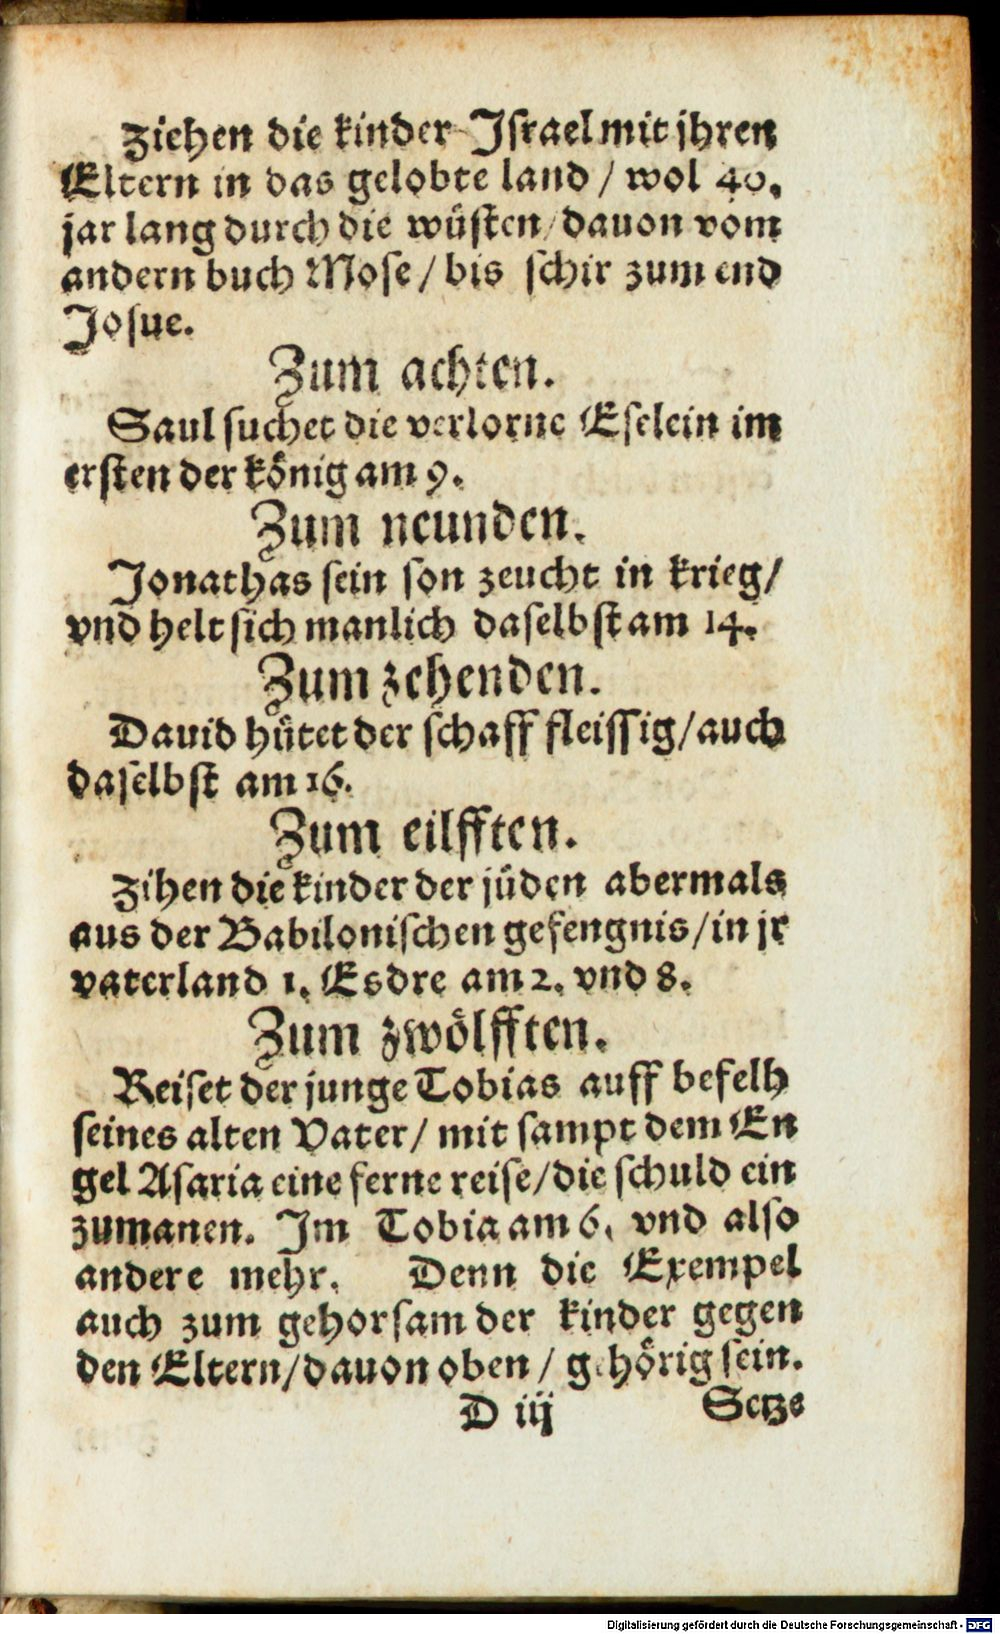 Ziehen die kinder Israel mit jhren
Eltern in das gelobte land / wol 40.
jar lang durch die wüsten / dauon vom
andern buch Mose / bis schir zum end
Josue.
Zum achten.
Saul suchet die verlorne Eselein im
ersten der könig am 9.
Zum neunden.
Jonathas sein son zeucht in krieg /
vnd helt sich manlich daselbst am 14.
Zum zehenden.
Dauid hütet der schaff fleissig / auch
daselbst am 16.
Zum eilfften.
Zihen die kinder der jüden abermals
aus der Babilonischen gefengnis / in jr
vaterland 1. Esdre am 2. vnd 8.
Zum zwölfften.
Reiset der junge Tobias auff befelh
seines alten Vater / mit sampt dem En
gel Asaria eine ferne reise / die schuld ein
zumanen. Im Tobia am 6. vnd also
andere mehr. Denn die Exempel
auch zum gehorsam der kinder gegen
den Eltern / dauon oben / gehörig sein.
D iij Setze
Digitalisierung gefördert durch die Deutsche Forschungsgemeinschaft - DFG